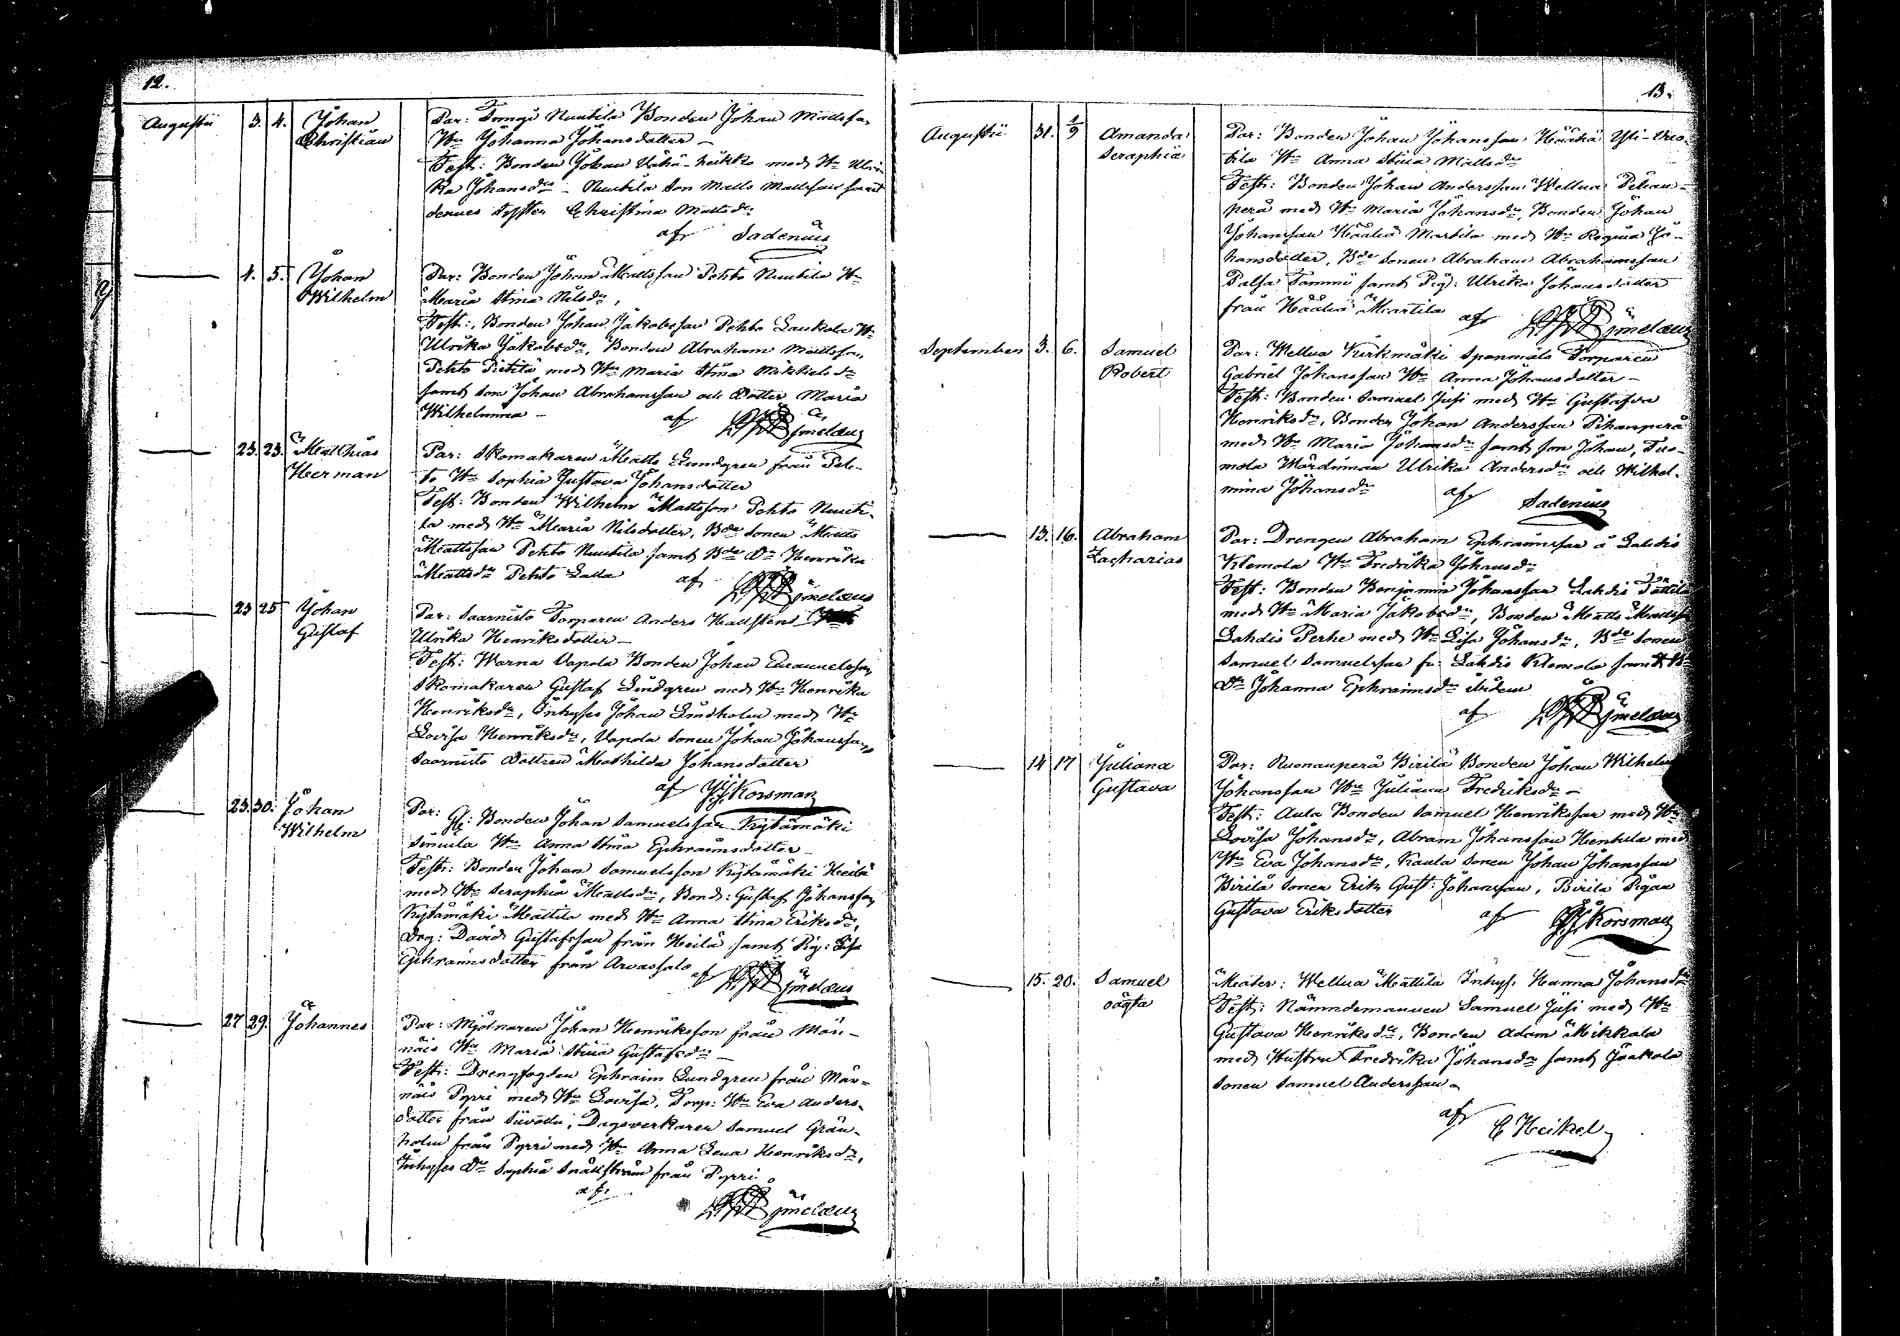 12.
Augustii 3. 4. Johan Christian
Par: Bonden Johan Mattss:
Hu Johanna Johansdotter –
Test: Bonden Johan Vähä-heikko med Hu Ulri-
ka Johansdr – Nuutila Son Matts Mattsson samt
dennes syster Christina Mattsdr
af Sadenius
4. 5. Johan Wilhelm
Par: Bonden Johan Mattsson Pehto Nuutila Hu
Maria Stina Nilsdr,
Test: Bonden Johan Jakobsson Pehto Laukola Hu
Ulrika Jakobsdr, Bonden Abraham Mattsson,
Pehto Pietilä med Hu Maria Stina Mickelsdr
samt Son Johan Abrahamsson och Dotter Maria
Wilhelmina – af
23. 23. Matthias Herman
Par: Skomakaren Matts Lundgren från Peh-
to Hu Sophia Gustava Johansdotter
Test: Bonden Wilhelm Mattsson Pehto Nuuti-
la med Hu Maria Nilsdotter, Bde Sonen Matts
Mattsson Pehto Nuutila samt Bde Dr Henrika
Mattsdr Pehto Lalla af
23 25 Johan Gustaf
Par: Saarnisto Torparen Anders Hallsten
Ulrika Henriksdotter –
Test: Warna Uapola Bonden Johan Emanuelsson,
Skomakaren Gustaf Lindgren med Hu Henrika
Henriksdr, Inhyses Johan Lindholm med Hu
Lovisa Henriksdr, Uapola Sonen Johan Johansson,
Saarnisto Dottren Mathilda Johansdotter
af Korsman
23. 30. Johan Wilhelm
Par: Bonden Johan Samuelsson Kytämäki
Simula Hu Anna Stina Ephraimsdotter –
Test: Bonden Johan Samuelsson Kytämäki Heilä
med Hu Seraphia Mattsdr, Bond: Gustaf Johansson,
Kytämäki Mattila med Hu Anna Stina Eriksdr,
Drg: David Gustafsson från Heilä samt Pig: Lisa
Ephraimsdotter från Arvassalo af
27 29. Johannes
Par: Mjölnaren Johan Henriksson från Män-
näis Hu Maria Stina Gustafsdr –
Test: Drengfogden Ephraim Lundgren från Män-
näis Pyri med Hu Lovisa, Torp: Hu Eva Anders-
dotter från, Dagsverkaren Samuel Grän-
holm från Pyri med Hu Anna Lena Henriksdr,
Inhyses Dr Sophia Snällström från Pyri.
af
13.
Augustii 31. 1/9 Amanda Seraphia
Par: Bonden Johan Johansson Häähä Yli-Uuo-
tila Hu Anna Stina Mattsdr
Test: Bonden Johan Andersson Wellua Pihan-
perä med Hu Maria Johansdr, Bonden Johan
Johansson Häähä Martila med Hu Regina Jo-
hansdotter, Bde Sonen Abraham Abrahamsson
Palsa Tammi samt Pig: Ulrika Johansdotter
från Häähä Martila af
September 3. 6. Samuel Robert
Par: Wellua Kirkmäki Spanmåls Torparen
Gabriel Johansson Hu Anna Johansdotter –
Test: Bonden Samuel Jusi med Hu Gustafva
Henriksdr, Bonden Johan Andersson Pihanperä
med Hu Maria Johansdr samt Son Johan, Tuo-
mola Ulrika Andersdr och Wilhel-
mina Johansdr af Sadenius
13. 16. Abraham Zacharias
Par: Drengen Abraham Ephraimsson å Lahdis
Klemola Hu Fredrika Johansdr
Test: Bonden Benjamin Johansson Lahdis
med Hu Maria Jakobsdr, Bonden Matts Mattss
Lahdis Perhe med Hu Lisa Johansdr, Bde Sonen
Samuel Samuelsson fr: Lahdis Klemola samt
Dr Johanna Ephraimsdr ibidem
af
14 17 Juliana Gustava
Par: Ruonanperä Birilä Bonden Johan Wilhelm
Johansson Hu Juliana Fredriksdr –
Test: Aula Bonden Samuel Henriksson med Hu
Lovisa Johansdr, Abram Johansson Henttula med
Hu Eva Johansdr, Kaula Sonen Johan Johansson
Birilä Sonen Erik Gust: Johansson, Birilä Pigan
Gustava Eriksdotter af Korsman
15. 20. Samuel oägta
Mater: Wellua Mattila Inhys. Hanna Johansdr
Test: Nämndemannen Samuel Jusi med Hu
Gustava Henriksdr, Bonden Adam Mikkola
med Hustru Fredrika Johansdr samt Jaakola
Sonen Samuel Andersson.
af E Heikel